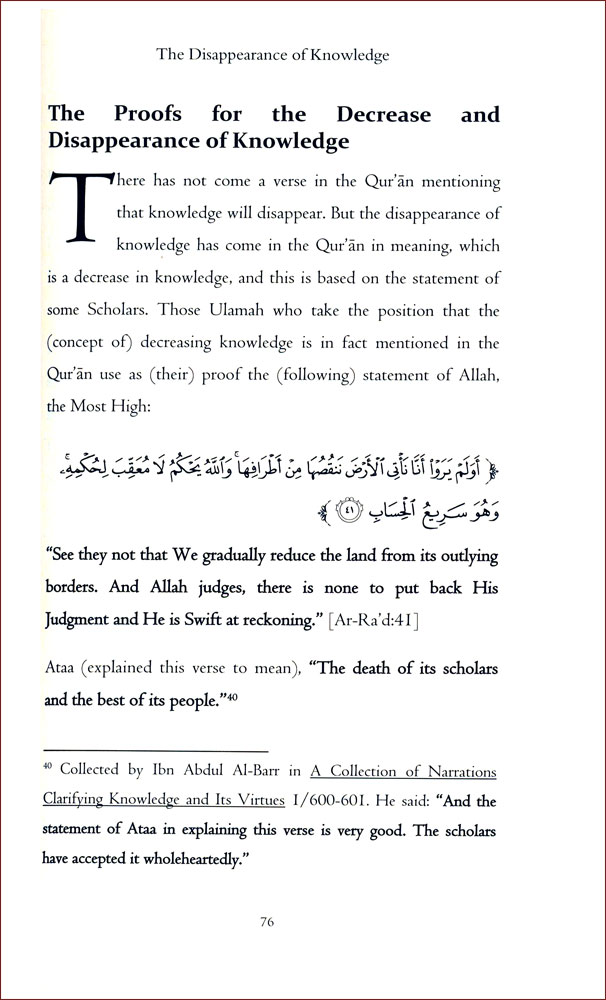 The Disappearance of Knowledge
The Proofs for the Decrease and
Disappearance of Knowledge
There has not come a verse in the Qur’ān mentioning
that knowledge will disappear. But the disappearance of
knowledge has come in the Qur’ān in meaning, which
is a decrease in knowledge, and this is based on the statement of
some Scholars. Those Ulamah who take the position that the
(concept of) decreasing knowledge is in fact mentioned in the
Qur’ān use as (their) proof the (following) statement of Allah,
the Most High:
﴿ أَوَلَمْ يَرَوْا۟ أَنَّا نَأْتِى ٱلْأَرْضَ نَنقُصُهَا مِنْ أَطْرَافِهَا ۚ وَٱللَّهُ يَحْكُمُ لَا مُعَقِّبَ لِحُكْمِهِۦ ۚ
وَهُوَ سَرِيعُ ٱلْحِسَابِ ٤١ ﴾
“See they not that We gradually reduce the land from its outlying
borders. And Allah judges, there is none to put back His
Judgment and He is Swift at reckoning.” [Ar-Ra’d:41]
Ataa (explained this verse to mean), “The death of its scholars
and the best of its people.”40
40 Collected by Ibn Abdul Al-Barr in A Collection of Narrations
Clarifying Knowledge and Its Virtues 1/600-601. He said: “And the
statement of Ataa in explaining this verse is very good. The scholars
have accepted it wholeheartedly.”
76